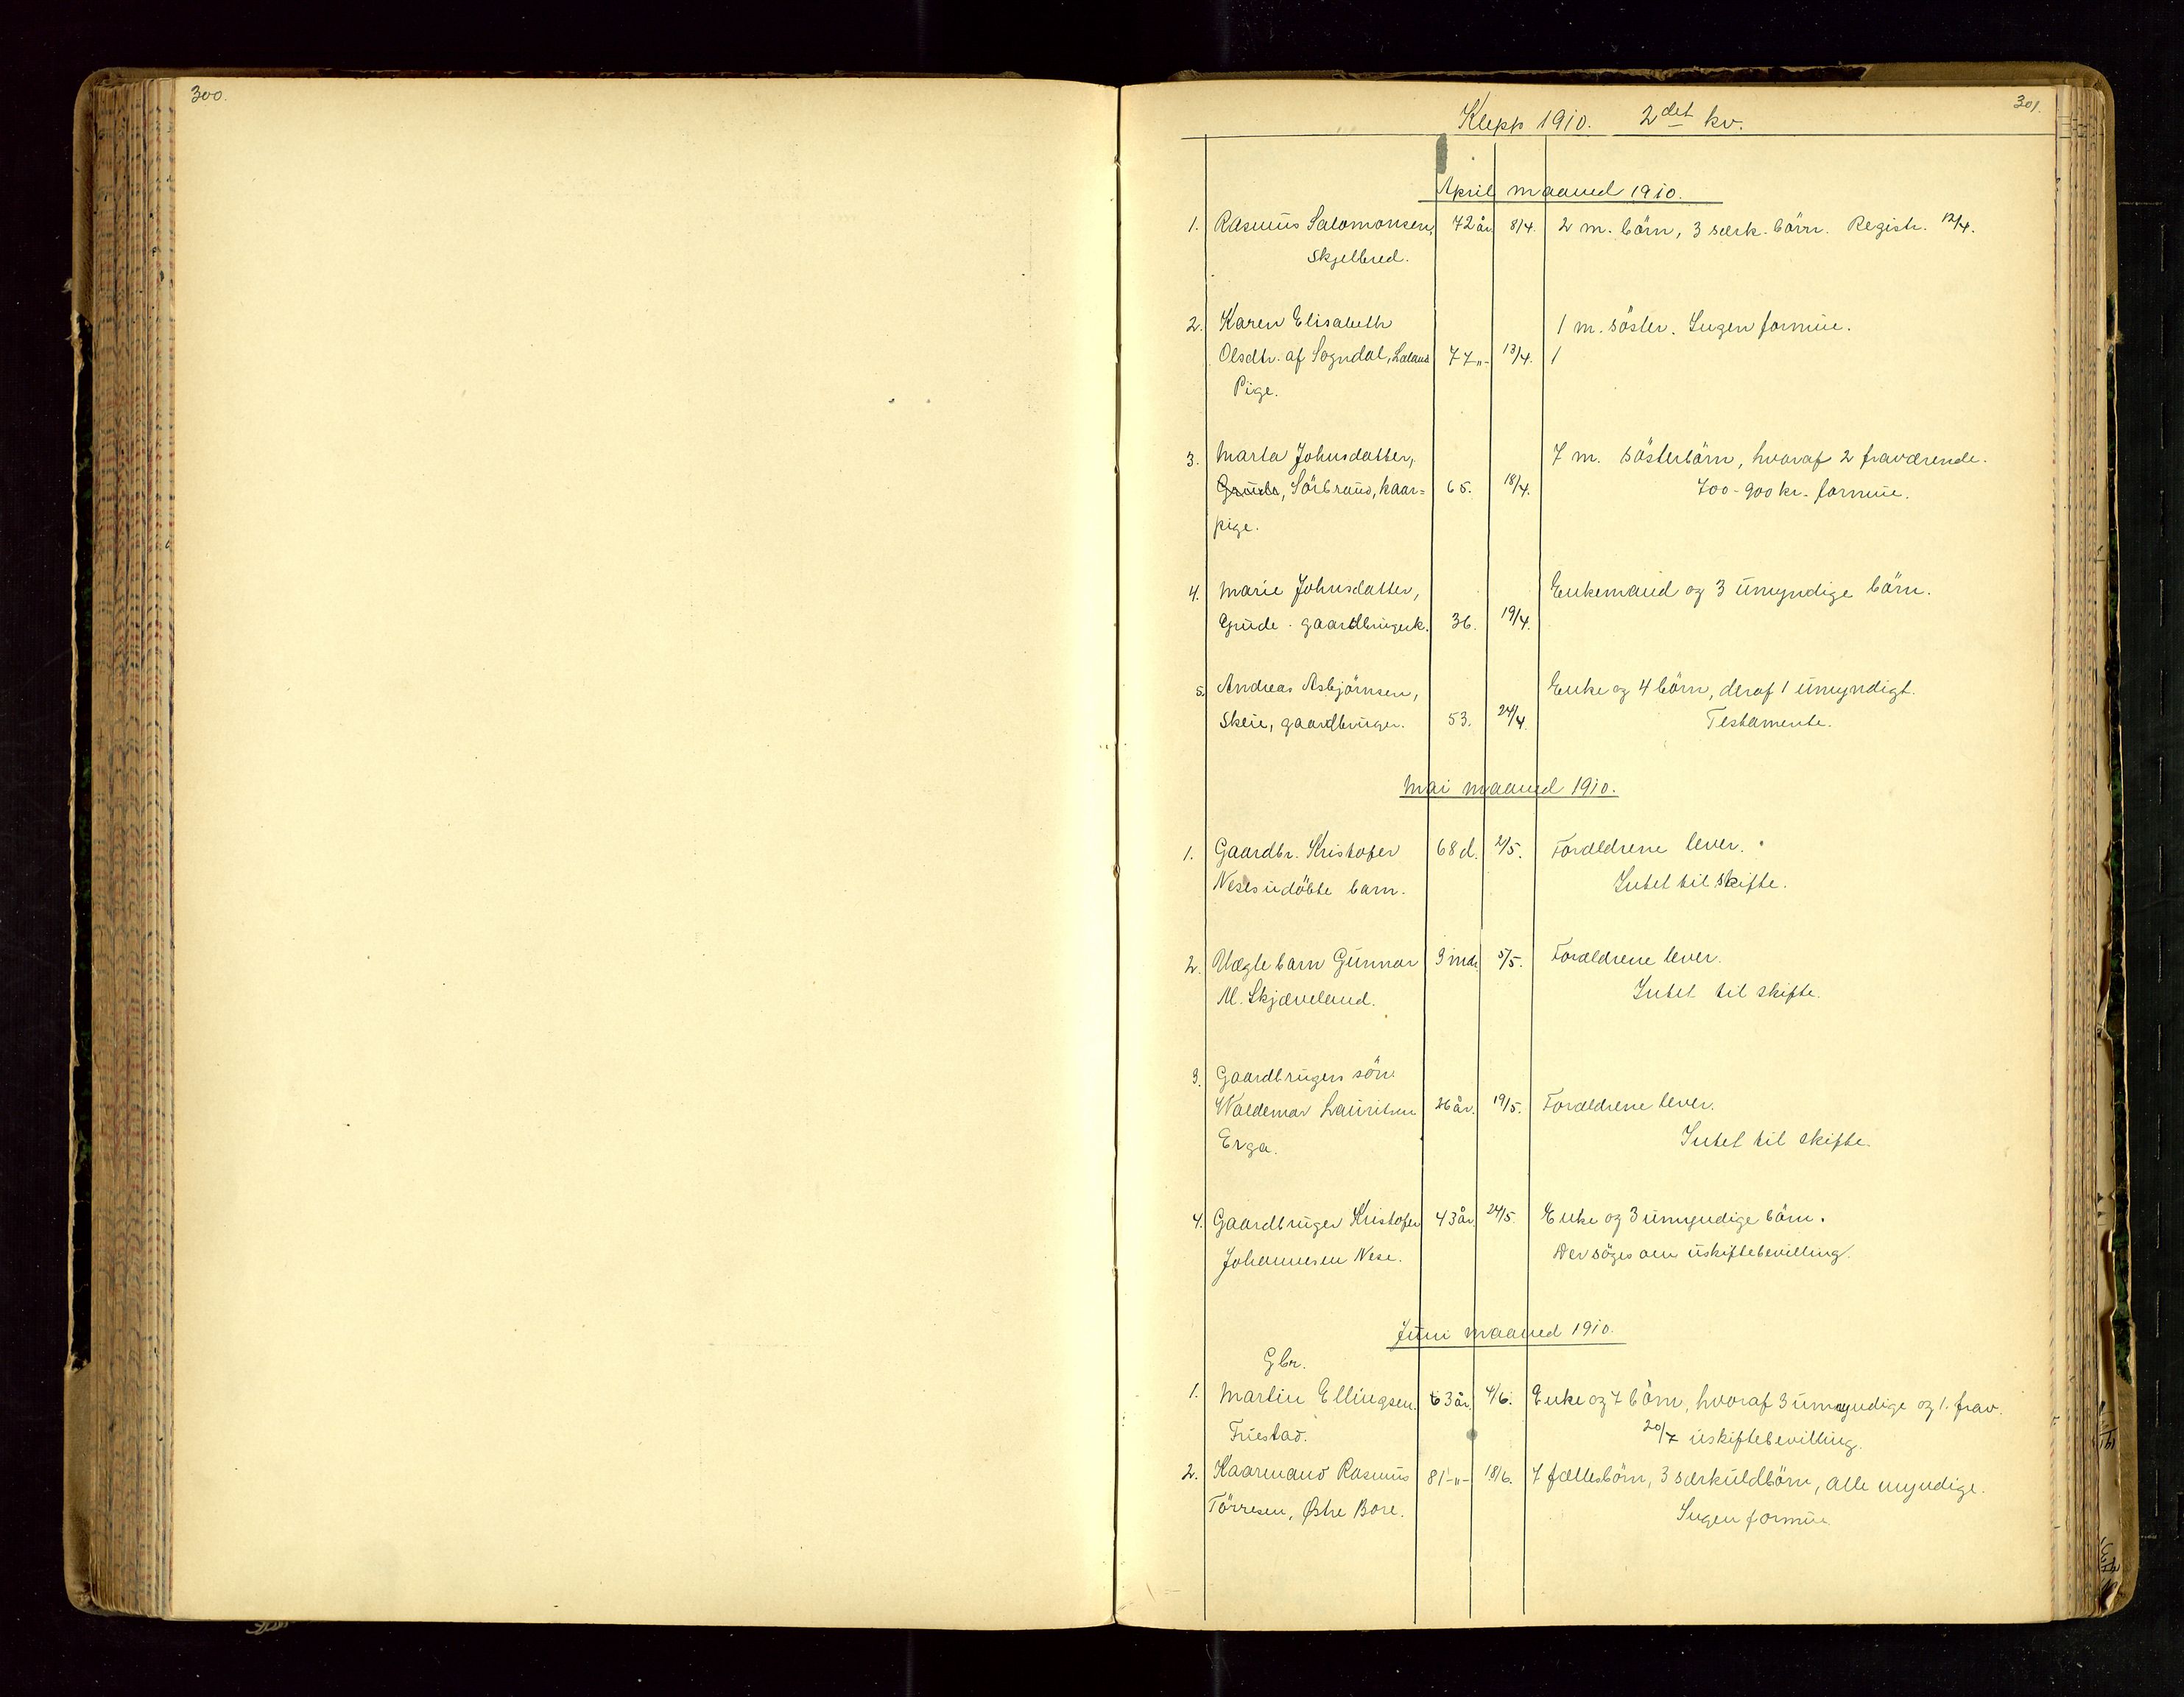 300.
301.
Klepp 1910. 2det kv.
April maaned 1910.
1. Rasmus Salomonsen, 72 år 8/4. 2 m. börn, 3 særk. börn. Registr. 12/4.
Skjelbred.
2. Karen Elisabeth 1 m. söster. Ingen formue.
Olsdtr. af Sogndal, Laland 77 -"- 13/4. 1
Pige.
3. Marta Johnsdatter, 7 m. sösterbörn, hvoraf 2 fraværende.
Grude, Sörbraud, kaar= 65. 18/4. 700-900 kr. formue.
pige.
4. Marie Johnsdatter, Enkemand og 3 umyndige börn.
Grude. gaardbrugerk. 36. 19/4.
5. Andreas Asbjörnsen, Enke og 4 börn, deraf 1 umyndigt.
Skeie, gaardbruger. 53. 24/4. Testamente.
Mai maaned 1910.
1. Gaardbr. Kristofer 68 d. 2/5. Forældrene lever.
Neses udöbte barn. Intet til skifte.
2. Uægte barn Gunnar 9 mdr. 5/5. Forældrene lever.
M. Skjæveland. Intet til skifte.
3. Gaardbrugers sön
Waldemar Lauritsen 26 år. 19/5. Forældrene lever.
Erga. Intet til skifte.
4. Gaardbruger Kristofer 43 år 24/5. Enke og 3 umyndige börn.
Johannesen Nese. Der söges om uskiftebevilling.
Juni maaned 1910.
Gbr.
1. Martin Ellingsen. 63 år. 4/6. Enke og 7 börn, hvoraf 3 umyndige og 1. frav.
Friestad. 20/7 uskiftebevilling.
2. Kaarmand Rasmus 81 -"- 18/6. 7 fællesbörn, 3 særkuldbörn, alle myndige.
Törresen, Østre Bore. Ingen formue.